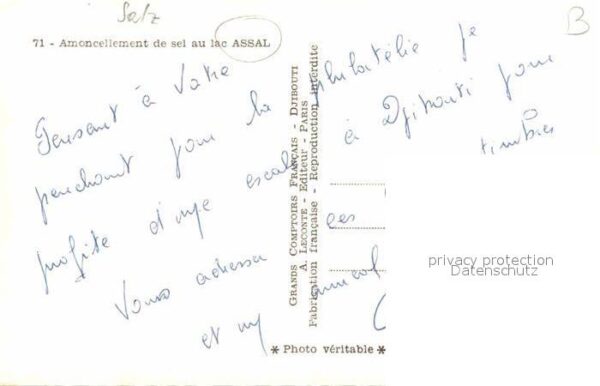 Salz
B
71 - Amoncellement de sel au lac ASSAL
Pensant à votre
penchant pour la philatélie je
profite d'une escale à Djibouti pour
Vous adresser ces timbres
et my amical
GRANDS COMPTOIRS FRANÇAIS - DJIBOUTI
A. LECONTE - Editeur - PARIS
Fabrication française - Reproduction interdite
* Photo véritable *
privacy protection
Datenschutz